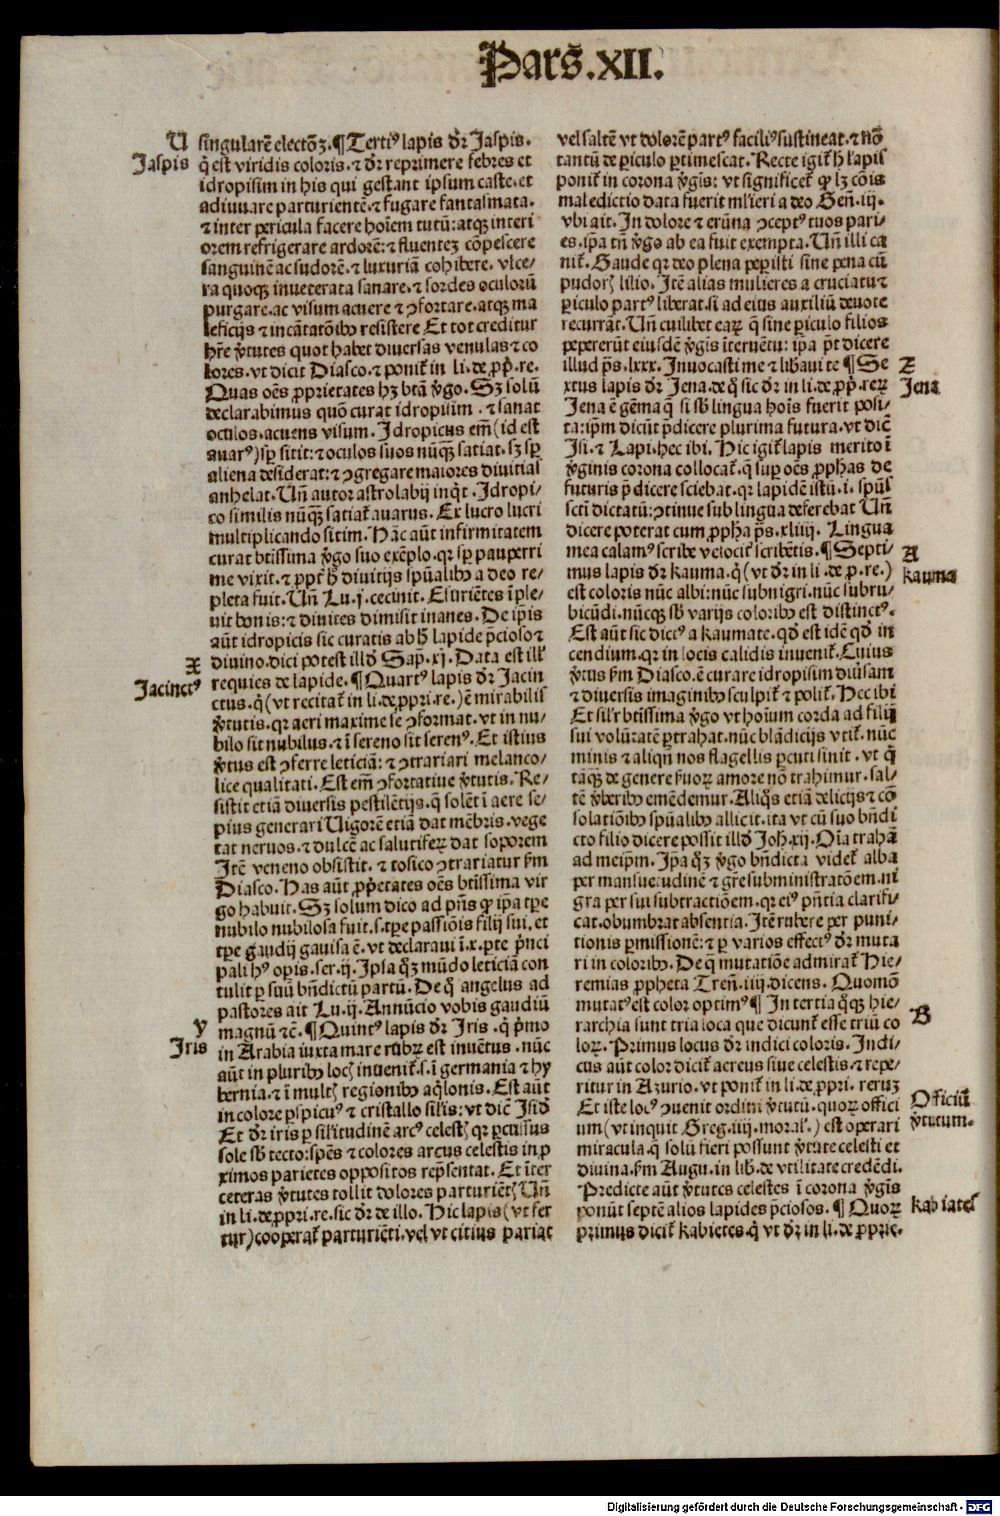 Pars̄.XII.
U
Jaspis
singularē electōꝫ.¶Tertiꝰ lapis dr̄ Jaspis.
q̄ est viridis coloris.⁊ dr̄ reprimere febres et
idropisim in his qui gestant ipsum caste.et
adiuuare parturientē.⁊ fugare fantasmata.
⁊ inter pericula facere hoīem tutū:atqꝫ interi
orem refrigerare ardorē:⁊ fluenteꝫ cōpescere
sanguinē ac sudorē.⁊ luxuriā cohibere. vlce/
ra quoqꝫ inueterata sanare.⁊ sordes oculorū
purgare.ac visum acuere ⁊ ꝯfortare.atqꝫ ma
leficijs ⁊ incātatōibꝰ resistere Et tot creditur
hr̄e v̄tutes quot habet diuersas venulas ⁊ co
lores.vt dicit Diasco.⁊ ponit̄ in li.de ꝓp̄.re.
Quas oēs ꝓprietates hꝫ btā v̄go.Sꝫ solū
declarabimus quō curat idropisim.⁊ sanat
oculos.acuens visum.Idropicus em̄(id est
auarꝰ)sꝑ sitit:⁊ oculos suos nūqꝫ satiat.sꝫ sꝑ
aliena desiderat:⁊ ꝯgregare maiores diuitias
anhelat.Un̄ autor astrolabij inqt̄.Idropi/
co similis nūqꝫ satiat̄ auarus.Ex lucro lucri
multiplicando sitim.Hāc aūt infirmitatem
curat btīssima v̄go suo exēplo.qr sꝑ pauperri
me vixit.⁊ ꝓpt̄ h̄ diuitijs spūalibꝰ a deo re/
pleta fuit.Un̄ Lu.j.cecinit.Esuriētes īple/
uit bonis:⁊ diuites dimisit inanes.De ip̄is
aūt idropicis sic curatis ab h̄ lapide p̄cioso ⁊
diuino.dici potest illd̄ Sap̄.xj.Data est ill̄
X
Jacinctꝰ
requies de lapide.¶Quartꝰ lapis dr̄ Jacin
ctus.q̄(vt recitat̄ in li.de ꝓpri.re.)ē mirabilis
v̄tutis.qr aeri maxime se ꝯformat.vt in nu/
bilo sit nubilus.⁊ ī sereno sit serenꝰ.Et istius
v̄tus est ꝯferre leticiā:⁊ ꝯtrariari melanco/
lice qualitati.Est em̄ ꝯfortatiue v̄tutis.Re/
sistit etiā diuersis pestilētijs.q̄ solēt ī aere se/
pius generari Uigorē etiā dat mēbris.vege
tat neruos.⁊ dulcē ac salutiferꝫ dat soporem
Itē veneno obsistit.⁊ tosico ꝯtrariatur ẜm
Diasco.Has aūt ꝓp̄etates oēs btīssima vir
go habuit.Sꝫ solum dico ad p̄ns ꝙ ip̄a tp̄e
nubilo nubilosa fuit.s.tp̄e passiōis filij sui.et
tp̄e gaudij gauisa ē.vt declaraui ī.x.ꝑte p̄nci
pali hꝰ opis.ser.ij.Ipsa q̄ꝫ mūdo leticiā con
tulit ꝑ suū bn̄dictū partū.De q̄ angelus ad
pastores ait Lu.ij.Annūcio vobis gaudiū
Y
Jris
magnū ⁊c̄.¶Quintꝰ lapis dr̄ Iris.q̄ p̄mo
in Arabia iuxta mare rubꝝ est inuētus.nūc
aūt in pluribꝰ locꝭ inuenit̄.s.ī germania ⁊ hy
bernia.⁊ ī multꝭ regionibꝰ aq̄lonis.Est aūt
in colore ꝑspicuꝰ ⁊ cristallo sil̄is:vt dicē Isid̄
Et dr̄ iris ꝑ sil̄itudinē arcꝰ celestꝭ qr ꝑcussus
sole sb̄ tecto:spēs ⁊ colores arcus celestis in ꝓ
ximos parietes oppositos rep̄sentat.Et īter
ceteras v̄tutes tollit dolores parturiētꝭ Un̄
in li.de ꝓpri.re.sic dr̄ de illo.Hic lapis(vt fer
tur)cooperat̄ parturiēti.vel vt citius pariat
vel saltē vt dolorē partꝰ faciliꝰ sustineat.⁊ nō
tantū de ꝑiculo ꝑtimescat.Recte igit̄ h̄ lapis
ponit̄ in corona v̄gis:vt significet̄ ꝙ lꝫ cōis
maledictio data fuerit ml̄ieri a deo Gen̄.iij.
vbi ait.In dolore ⁊ erūna ꝯceptꝰ tuos pari/
es.ip̄a tn̄ v̄go ab ea fuit exempta.Un̄ illi ca
nit̄.Gaude qr deo plena peꝑisti sine pena cū
pudorꝭ lilio.Itē alias mulieres a cruciatu ⁊
ꝑiculo partꝰ liberat.si ad eius auxiliū deuote
recurrāt.Un̄ cuilibet eaꝝ q̄ sine ꝑiculo filios
pepererūt eiusdē v̄gis īteruētu:ip̄a pt̄ dicere
Z
Jena
illud p̄s.lxxx.Inuocasti me ⁊ libaui te ¶Se
xtus lapis dr̄ Jena.de q̄ sic dr̄ in li.de ꝓp̄.reꝝ
Jena ē gēma q̄ si sb̄ lingua hoīs fuerit posi/
ta:ip̄m dicūt p̄dicere plurima futura.vt dic̄
Isi.⁊ Lapi.hec ibi.Hic igit̄ lapis merito ī
v̄ginis corona collocat̄.q̄ suꝑ oēs ꝓphas de
futuris p̄dicere sciebat.qr lapidē istū.i.spūs
scti dictatū:ꝯtinue sub lingua deferebat Un̄
dicere poterat cum ꝓpha p̄s.xliiij.Lingua
A
kauma
mea calamꝰ scribe velocit̄ scribētis.¶Septi/
mus lapis dr̄ kauma.q̄(vt dr̄ in li.de ꝓ.re.)
est coloris nūc albi:nūc subnigri.nūc subru/
bicūdi.nūcqꝫ sb̄ varijs coloribꝰ est distinctꝰ.
Est aūt sic dictꝰ a kaumate.qd̄ est idē qd̄ in
cendium.qr in locis calidis inuenit̄.Cuius
v̄tus ẜm Diasco.ē curare idropisim diūsam
⁊ diuersis imaginibꝰ sculpit̄ ⁊ polit̄.Hec ibi
Et sil̄r btīssima v̄go vt hoīum corda ad filiū
sui volūtatē ꝑtrahat.nūc blādicijs vtit̄.nūc
minis ⁊ aliqn̄ nos flagellis ꝑcuti sinit.vt q̄
tāqꝫ de genere ẜuoꝝ amore nō trahimur.sal/
tē v̄beribꝰ emēdemur.Aliq̄s etiā delicijs ⁊ cō
solatiōibꝰ spūalibꝰ allicit.ita vt cū suo bn̄di
cto filio dicere possit illd̄ Joh.xij.Oīa trahā
ad meip̄m.Ip̄a q̄ꝫ v̄go bn̄dicta videt̄ alba
per mansuetudinē ⁊ gr̄e subministratōem.ni
gra per sui subtractiōem.qr eiꝰ p̄ntia clarifi/
cat.obumbrat absentia.Itē rubere per puni/
tionis ꝑmissionē:⁊ ꝑ varios effectꝰ dr̄ muta
ri in coloribꝰ.De q̄ mutatiōe admirat̄ Hie/
remias ꝓpheta Tren̄.iiij.dicens.Quomō
mutatꝰ est color optimꝰ¶In tertia q̄qꝫ hie/
B
rarchia sunt tria loca que dicunt̄ esse triū co
loꝝ.Primus locus dr̄ indici coloris.Indi/
cus aūt color dicit̄ aereus siue celestis.⁊ repe/
ritur in Azurio.vt ponit̄ in li.de ꝓpri.reruꝫ
Officiū
v̄tutum.
Et iste locꝰ ꝯuenit ordini v̄tutū.quoꝝ offici
um(vt inquit Greg.iiij.moral̄.)est operari
miracula.q̄ solū fieri possunt v̄tute celesti et
diuina.ẜm Augu.in lib̄.de vtilitate credēdi.
Predicte aūt v̄tutes celestes ī corona v̄gis
kabiates
ponūt septē alios lapides p̄ciosos.¶Quoꝝ
primus dicit̄ kabietes.q̄ vt dr̄ in li.de ꝓprie.
Digitalisierung gefördert durch die Deutsche Forschungsgemeinschaft - DFG